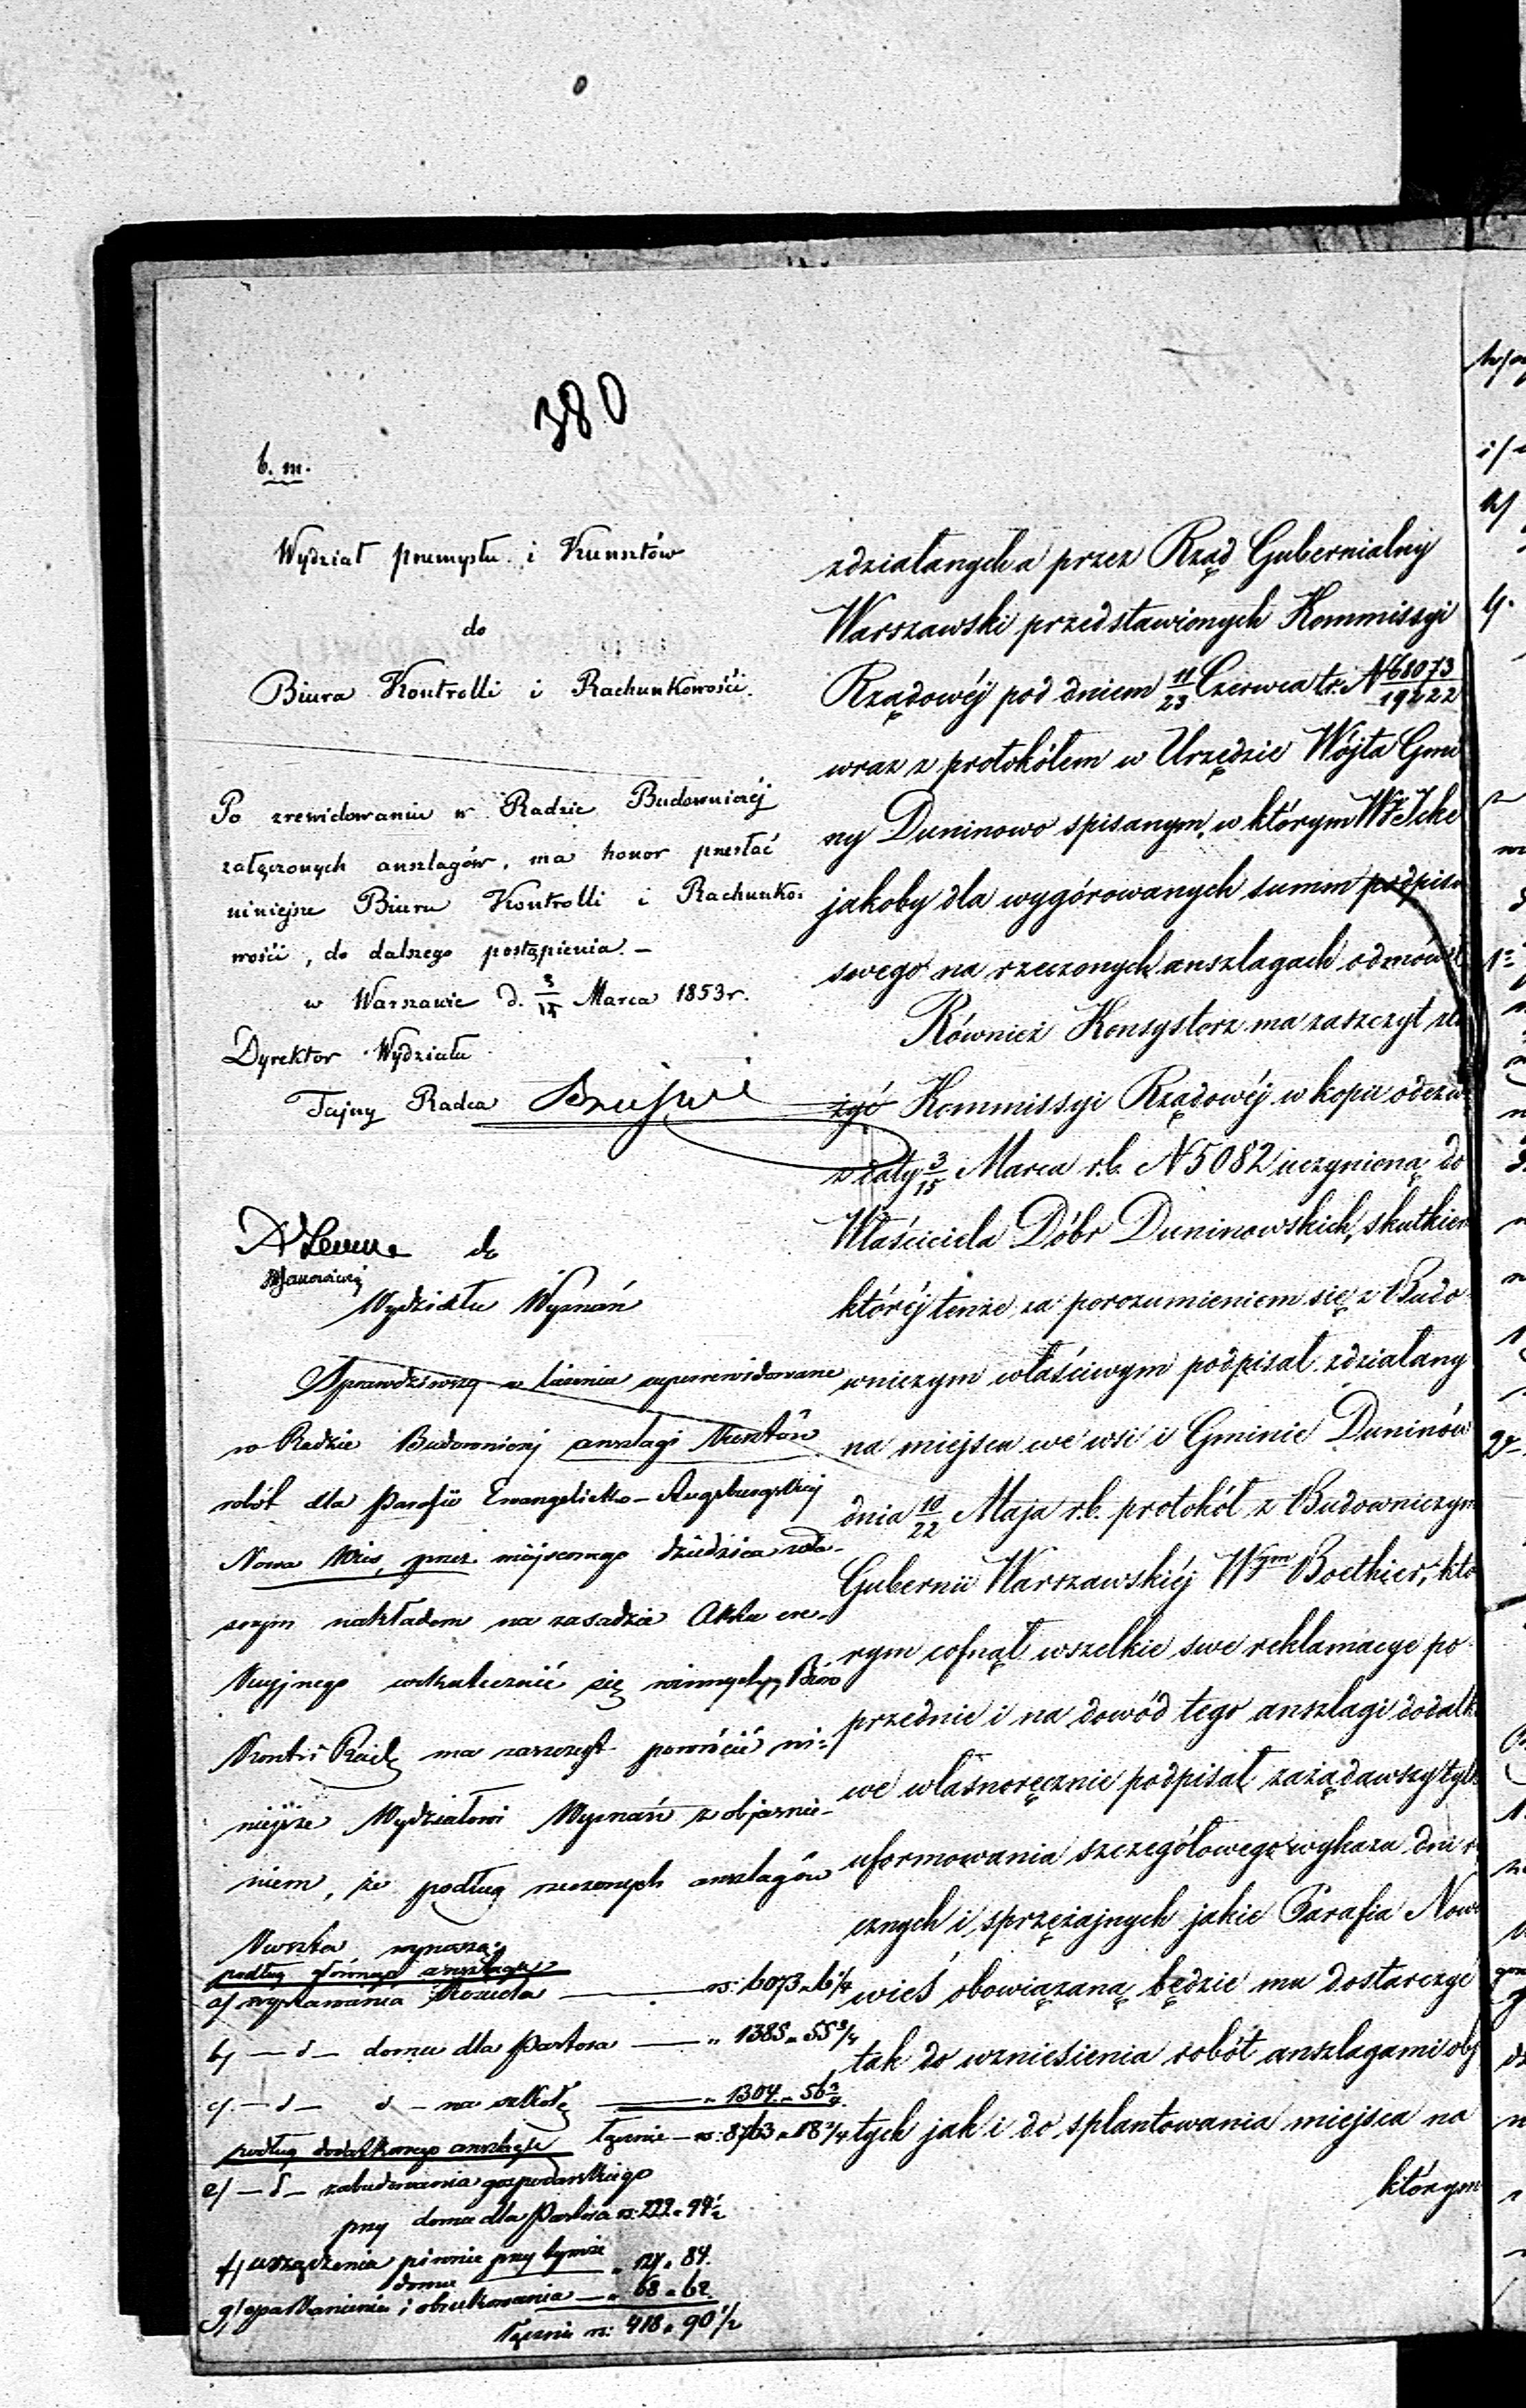 380
b. m.
Wydział przemysłu i Kunsztów
do
Biura Kontrolli i Rachunkowości.
Po zrewidowaniu w Radzie Budowniczéj
załączonych anszlagów, ma honor przesłać
niniejsze Biuru Kontrolli i Rachunko-
wości, do dalszego postąpienia. —
w Warszawie d. 3/15 Marca 1853 r.
Dyrektor Wydziału
Tajny Radca
do
Wydziału Wyznań
Sprawdziwszy w liczeniu superrewidowane
w Radzie Budowniczej anszlagi kosztów
robót dla Parafii Ewangelicko-Augsburgskiej
Nowa Wieś, przez miejscowego dziedzica wła-
snym nakładem na zasadzie Aktu ere-
kcyjnego uskutecznić się winnych, Biuro
Kontr: i Rach: ma zaszczyt powrócić ni-
niejsze Wydziałowi Wyznań z objaśnie-
niem, że podług rzeczonych anszlagów
Koszta wynoszą:
podług głównego anszlagu
a/ wystawienia Kościoła — rs: 6073 „ 6 1/4
b/ — d — domu dla Pastora — „ 1385 „ 55 3/4
c/ — d — d — na szkołę — „ 1304 „ 56 3/4
Łącznie — rs: 8763 „ 18 3/4
podług dodatkowego anszlagu
e/ — d — zabudowania gospodarskiego
przy domu dla Pastora rs: 222 „ 44 1/2
f/ urządzenia piwnic przy tymże
domu — „ 127 „ 84.
g/ oparkanienia i obrukowania — „ 68 „ 62.
Łącznie rs: 418 „ 90 1/2
zdziałanych a przez Rząd Gubernialny
Warszawski przedstawionych Kommissyi
Rządowéj pod dniem 11/23 Czerwca t.r. N 68073/19222
wraz z protokółem w Urzędzie Wójta Gmi
ny Duninowo spisanym, w którym W. Icke
jakoby dla wygórowanych summ podpisu
swego na rzeczonych anszlagach odmówił
Również Konsystorz ma zaszczyt zło
żyć Kommissyi Rządowéj w kopii odezwę
z daty 3/15 Marca r.b. N 5082 uczynioną do
Właściciela Dóbr Duninowskich, skutkiem
któréj tenże za porozumieniem się z Budo
wniczym właściwym podpisał zdziałany
na miejscu we wsi i Gminie Duninów
dnia 10/22 Maja r.b. protokół z Budowniczym
Gubernii Warszawskiéj Wym Boethier, któ
rym cofnął wszelkie swe reklamacye po
przednie i na dowód tego anszlagi dodatko
we własnoręcznie podpisał, zażądawszy tylko
uformowania szczegółowego wykazu dni r
cznych i sprzężajnych jakie Parafia Nowa
wieś obowiązaną będzie mu dostarczyć
tak do wzniesienia robót anszlagami obj
tych jak i do splantowania miejsca na
którym